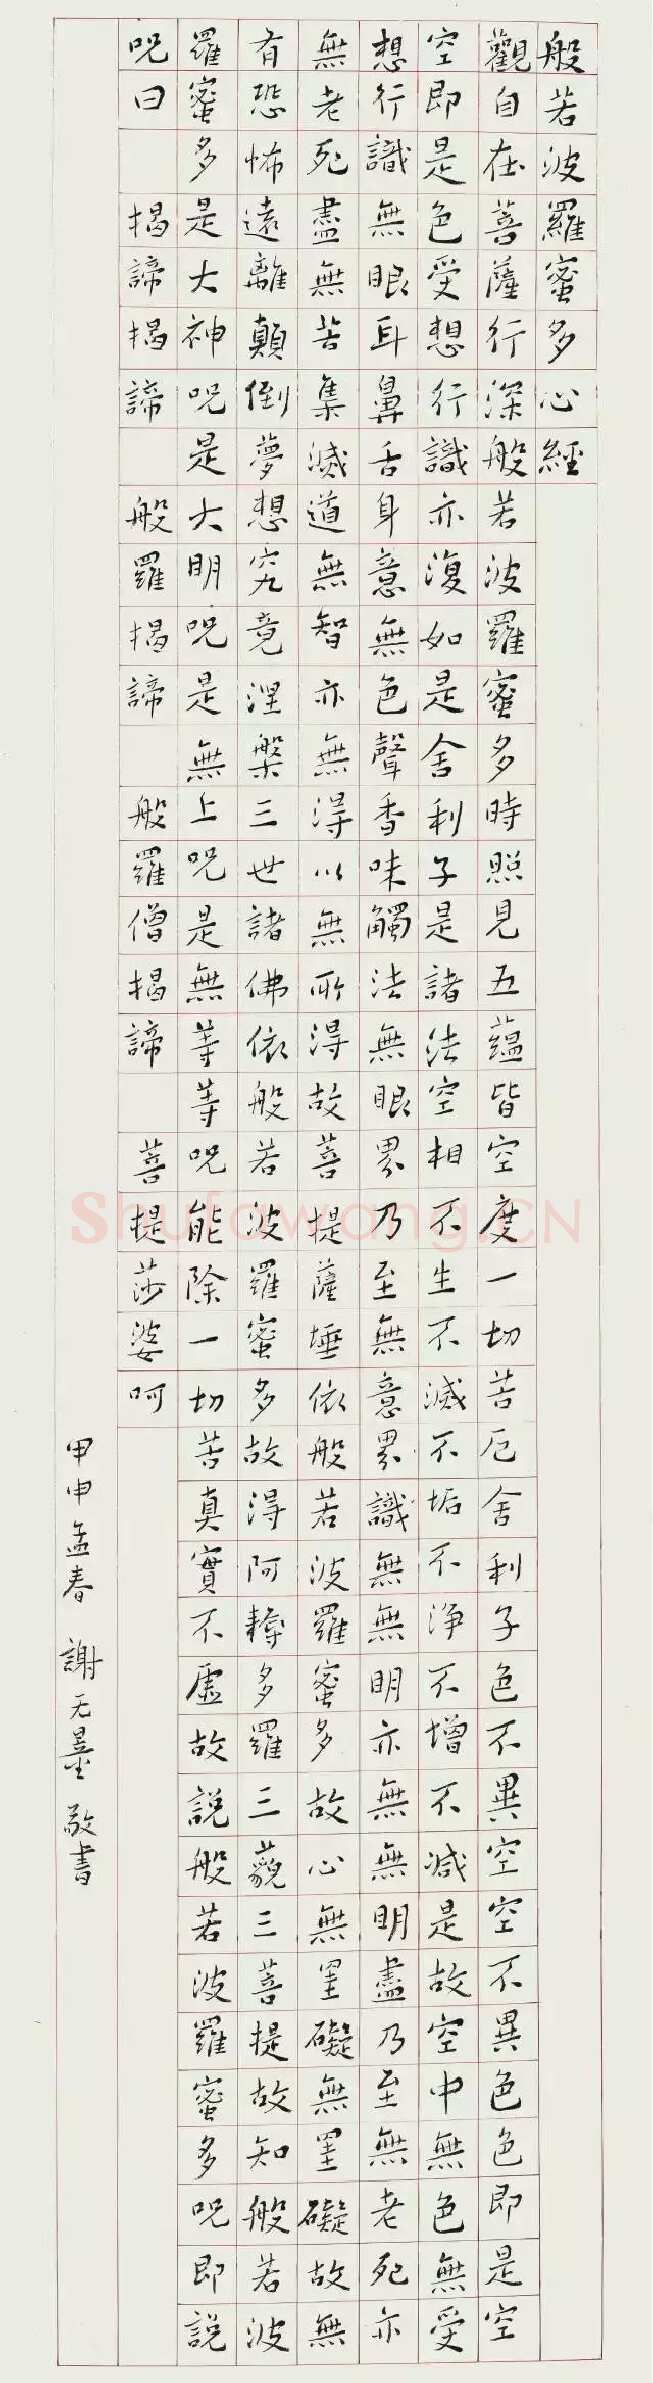 般若波羅蜜多心經
觀自在菩薩行深般若波羅蜜多時照見五蘊皆空度一切苦厄舍利子色不異空空不異色色即是空
空即是色受想行識亦復如是舍利子是諸法空相不生不滅不垢不淨不增不減是故空中無色無受
想行識無眼耳鼻舌身意無色聲香味觸法無眼界乃至無意界識無無明亦無無明盡乃至無老死亦
無老死盡無苦集滅道無智亦無得以無所得故菩提薩埵依般若波羅蜜多故心無罣礙無罣礙故無
有恐怖遠離顛倒夢想究竟涅槃三世諸佛依般若波羅蜜多故得阿耨多羅三藐三菩提故知般若波
羅蜜多是大神呪是大明呪是無上呪是無等等呪能除一切苦真實不虛故說般若波羅蜜多呪即說
呪曰 揭諦揭諦 般羅揭諦 般羅僧揭諦 菩提莎婆呵
甲申孟春 謝无量 敬書
Shufawang.CN